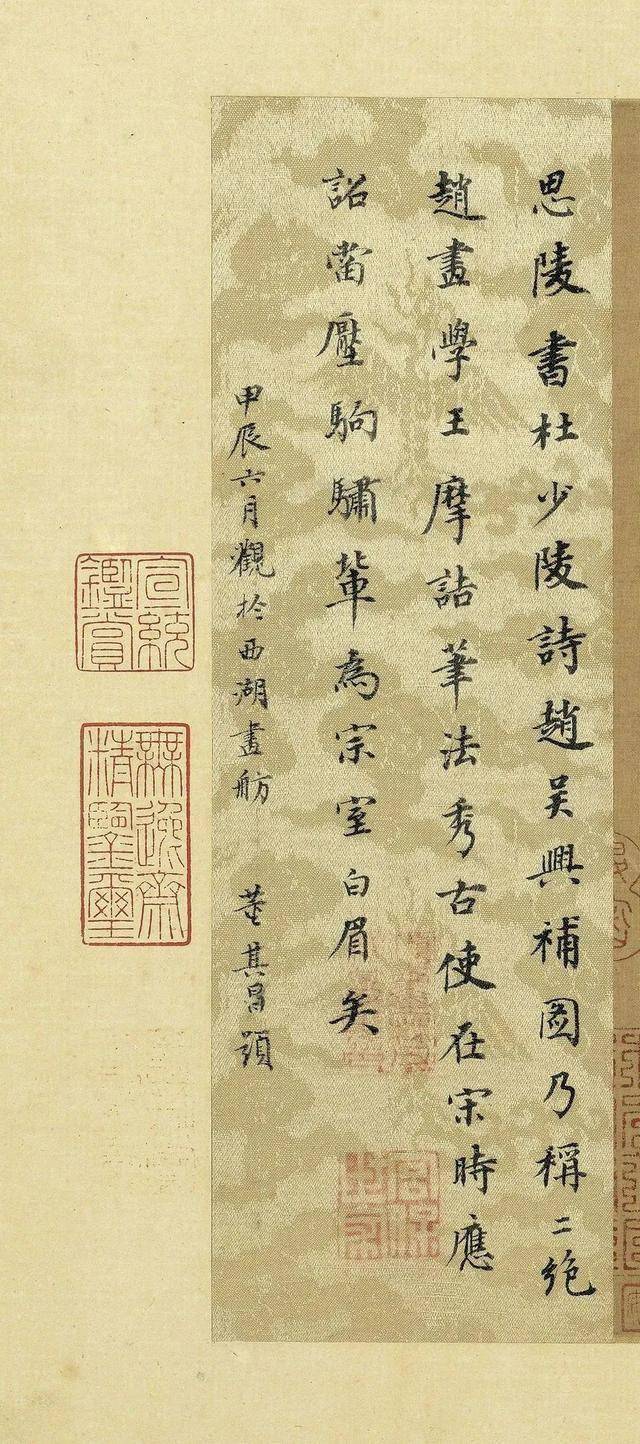 思陵書杜少陵詩趙吴興補圖乃稱二絶
趙畫學王摩詰筆法秀古使在宋時應
詔當壓駒驌輩為宗室白眉矣
甲辰六月觀於西湖畫舫 董其昌題
宣統
鑑賞
無逸齋
精鑒璽